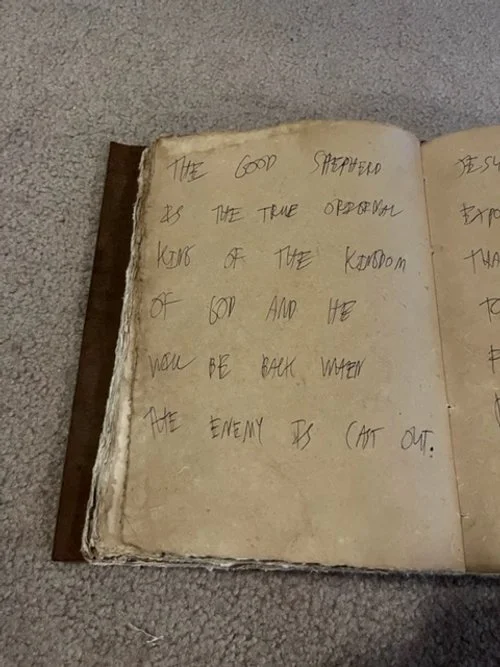 THE GOOD SHEPHERD
IS THE TRUE ORIGINAL
KING OF THE KINGDOM
OF GOD AND HE
WILL BE BACK WHEN
THE ENEMY IS CAST OUT.
JESU
EXPO
THA
TO